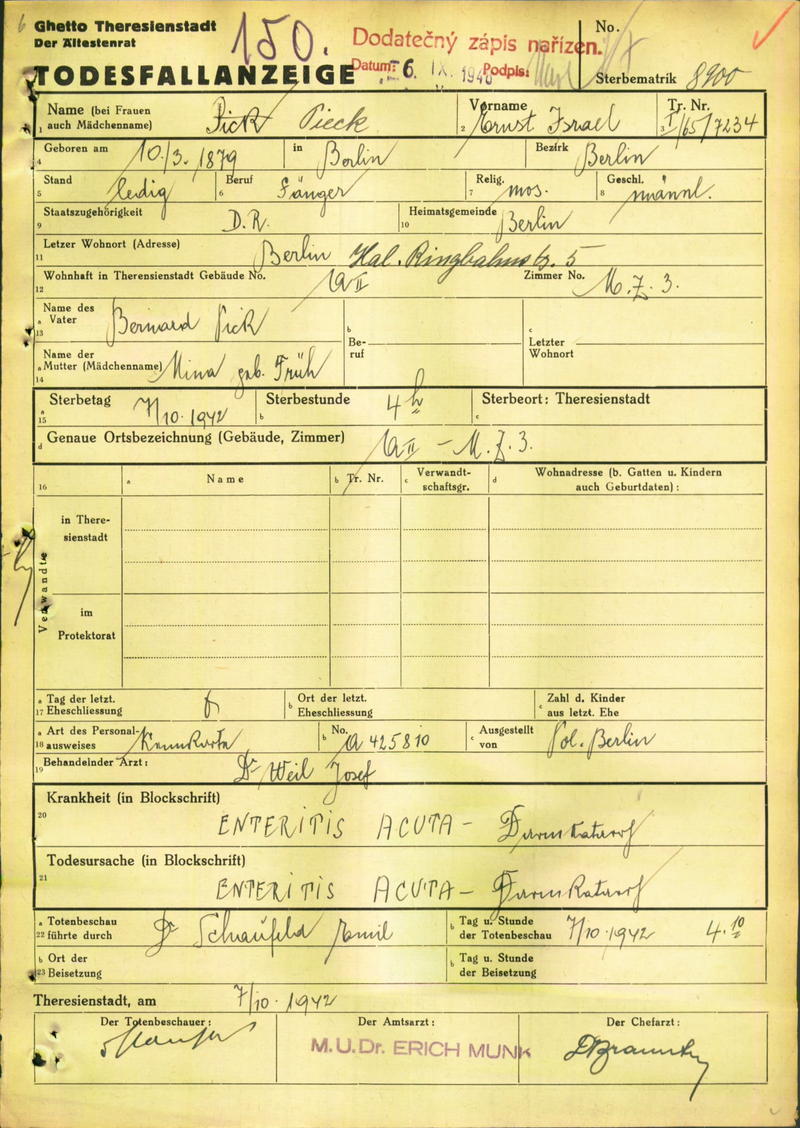 Ghetto Theresienstadt
Der Ältestenrat
150.
Dodatečný zápis nařízen.
Datum: 6. IX. 194 Podpis:
No.
TODESFALLANZEIGE
Sterbematrik 8900
Name (bei Frauen auch Mädchenname) Pick Pieck
1
Vorname Ernst Israel
2
Tr. Nr. I/65/7234
3
Geboren am 10./3. 1879 in Berlin Bezirk Berlin
4
Stand ledig Beruf Sänger Relig. mos. Geschl. männl.
5 6 7 8
Staatszugehörigkeit D.R. Heimatsgemeinde Berlin
9 10
Letzer Wohnort (Adresse) Berlin Hal. Ringbahnstr. 5
11
Wohnhaft in Therensienstadt Gebäude No. Zimmer No. M.Z. 3.
12
Name des
a Vater Bernard Pick
13
b
Be-
ruf
c
Letzter
Wohnort
Name der
a Mutter (Mädchenname) Mina geb. Früh
14
Sterbetag 7/10. 1942 Sterbestunde 4 h Sterbeort: Theresienstadt
a 15 b c
d Genaue Ortsbezeichnung (Gebäude, Zimmer) M.Z. 3.
16 a Name b Tr. Nr. c Verwandt-
schaftsgr. d Wohnadresse (b. Gatten u. Kindern
auch Geburtdaten) :
Verwandte
in There-
sienstadt
im
Protektorat
a Tag der letzt.
17 Eheschliessung
b Ort der letzt.
Eheschliessung
c Zahl d. Kinder
aus letzt. Ehe
a Art des Personal-
18 ausweises Kennkarte
b No. A 425810
c Ausgestellt
von Pol. Berlin
Behandelnder Arzt : Dr Weil Josef
19
Krankheit (in Blockschrift)
20
ENTERITIS ACUTA - Darmkatarrh
Todesursache (in Blockschrift)
21
ENTERITIS ACUTA - Darmkatarrh
a Totenbeschau
22 führte durch Dr Schaufeld Emil
b Tag u. Stunde
der Totenbeschau 7/10. 1942 4.10
b Ort der
23 Beisetzung
b Tag u. Stunde
der Beisetzung
Theresienstadt, am 7/10. 1942
Der Totenbeschauer : Der Amtsarzt : Der Chefarzt :
M.U.Dr. ERICH MUNK